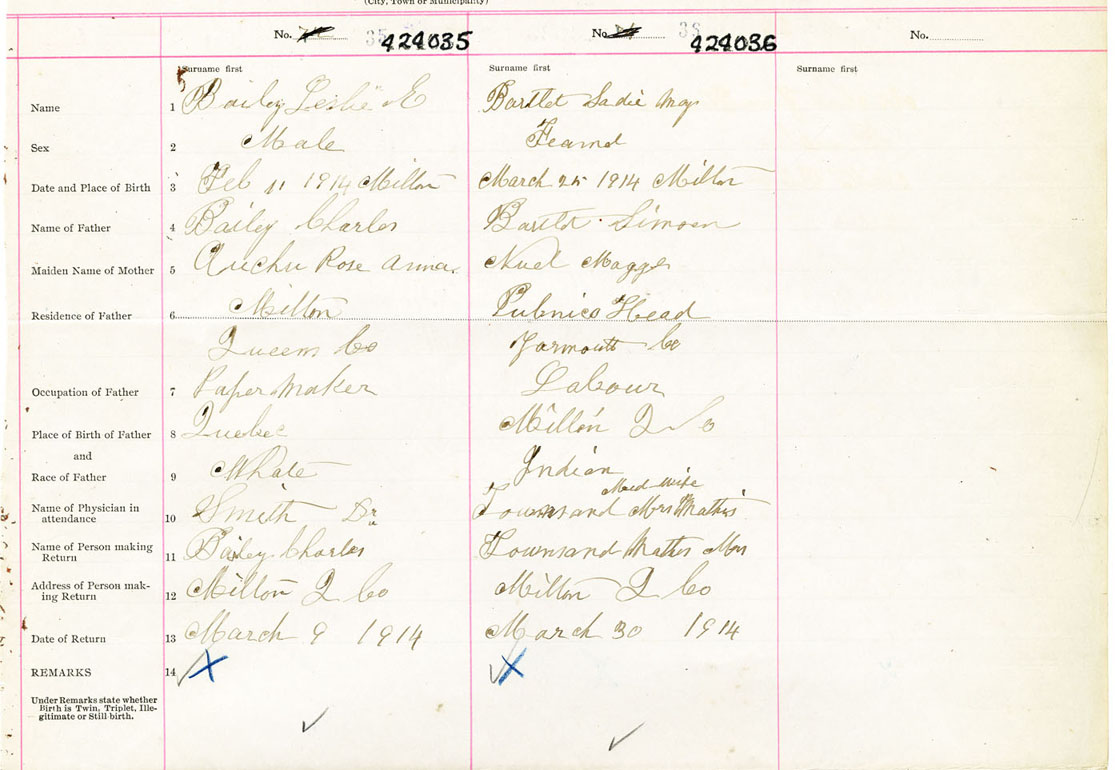 (City, Town or Municipality)
No. 35 424035
No. 36 424036
No.
Surname first
Surname first
Surname first
Name 1 Bailey Leslie E Bartlet Sadie May
Sex 2 Male Feamd
Date and Place of Birth 3 Feb 11 1914 Milton March 25 1914 Milton
Name of Father 4 Bailey Charles Bartlet Simoen
Maiden Name of Mother 5 Auchu Rose Anna Maggs
Residence of Father 6 Milton Pubnico Head
Queens Co Yarmouth Co
Occupation of Father 7 Paper Maker Labour
Place of Birth of Father 8 Quebec Milton Q Co
and
Race of Father 9 White Indian
Mid wife
Name of Physician in
attendance 10 Smith Dr Townsand Mrs Mathis
Name of Person making
Return 11 Bailey Charles Townsand Mathis Mrs
Address of Person mak-
ing Return 12 Milton Q Co Milton Q Co
Date of Return 13 March 9 1914 March 30 1914
REMARKS 14 X X
Under Remarks state whether
Birth is Twin, Triplet, Ille-
gitimate or Still-birth.